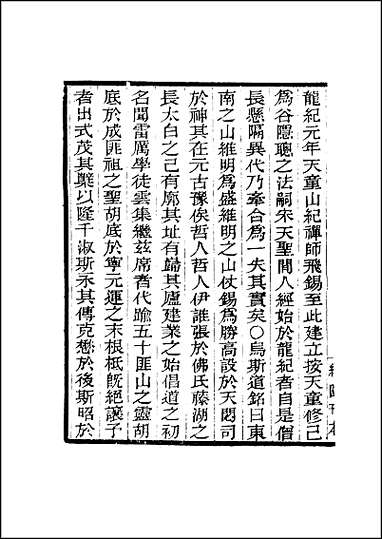 龍紀元年天童山紀禪師飛錫至此建立按天童修己
為谷隱聰之法嗣宋天聖間人經始於龍紀者自是僧
長懸隔異代乃牽合為一失其實矣○烏斯道銘曰東
南之山維明為盛維明之山仗錫為勝高設於天閟司
於神其在元古豫俟哲人哲人伊誰張於佛氏藤湖之
長太白之己有廓其址有歸其廬建業之始倡道之初
名聞雷厲學徒雲集繼茲席者代踰五十匪山之靈胡
底於成匪祖之聖胡底於寧元運之末根柢既絕讓子
者出式茂其蘖以隆千淑斯永其傳克懋於後斯昭於